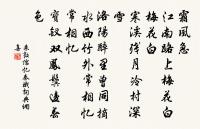 霜風急
江南路上梅花白
梅花白
寒溪殘月冷村深
雪
洛陽醉裏曾同摘
水西竹外常相憶
常相憶
寶釵雙鳳鬢邊春
色
朱敦儒憶秦娥詞典網